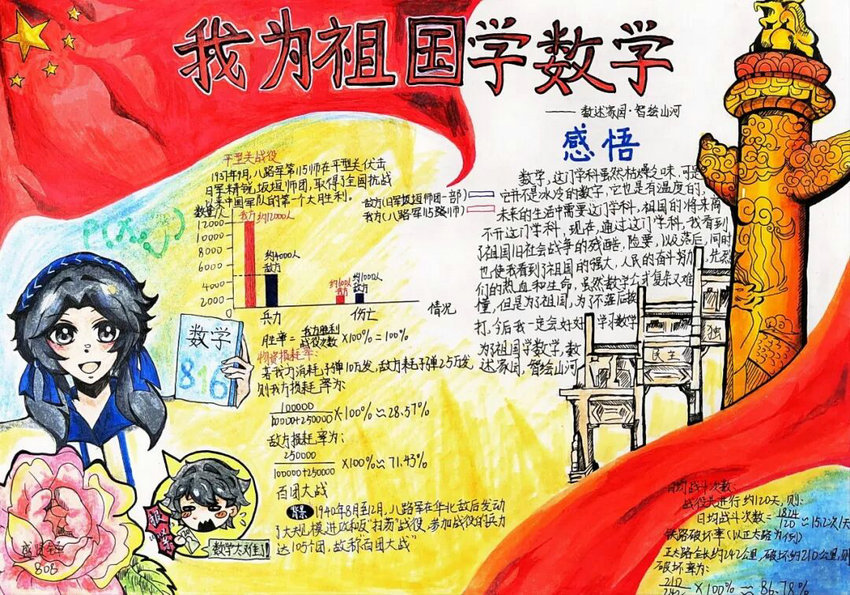 我为祖国学数学
——数述家国·智绘山河
平型关战役
1937年9月,八路军第115师在平型关伏击
日军精锐坂垣师团,取得了全国抗战
以来中国军队的第一个大胜利。
数量/人
12000
10000
8000
6000
4000
2000
我方约12000人
约4000人
敌方
约1000人
敌方
兵力
伤亡
情况
敌方(日军坂垣师团一部)
我方(八路军115师)
胜率=我方胜利/战役次数×100%=100%
物资损耗率:
若我方消耗子弹10万发,敌方耗子弹25万发
则我方损耗率为:
100000/100000+250000×100%≈28.57%
敌方损耗率为:
250000/100000+250000×100%≈71.43%
百团大战
背景
1940年8月至12月,八路军在华北敌后发动
了大规模进攻和反"扫荡"战役,参加战役的兵力
达105个团,故称"百团大战"
数学
816
数学太难了!
805
感悟
数学,这门学科虽然枯燥乏味,可是
它并不是冰冷的数字,它也是有温度的,
未来的生活中需要这门学科,祖国的将来离
不开这门学科,现在,通过这门学科,我看到
了祖国旧社会战争的残酷,险要,以及落后,同时
也使我看到了祖国的强大,人民的奋斗努力,先烈
们的热血和生命,虽然数学公式复杂又难
懂,但是为了祖国,为了不落后挨
打,今后我一定会好好学习数学
为了祖国学数学,数
述家国,智绘山河
民生
独
日均战斗次数:
战役共进行约120天,则:
日均战斗次数=1824/120≈15.2次/天
铁路破坏率(以正太路为例)
正太路全长约242公里,破坏约210公里,则
破坏率为:
210/242×100%≈86.78%